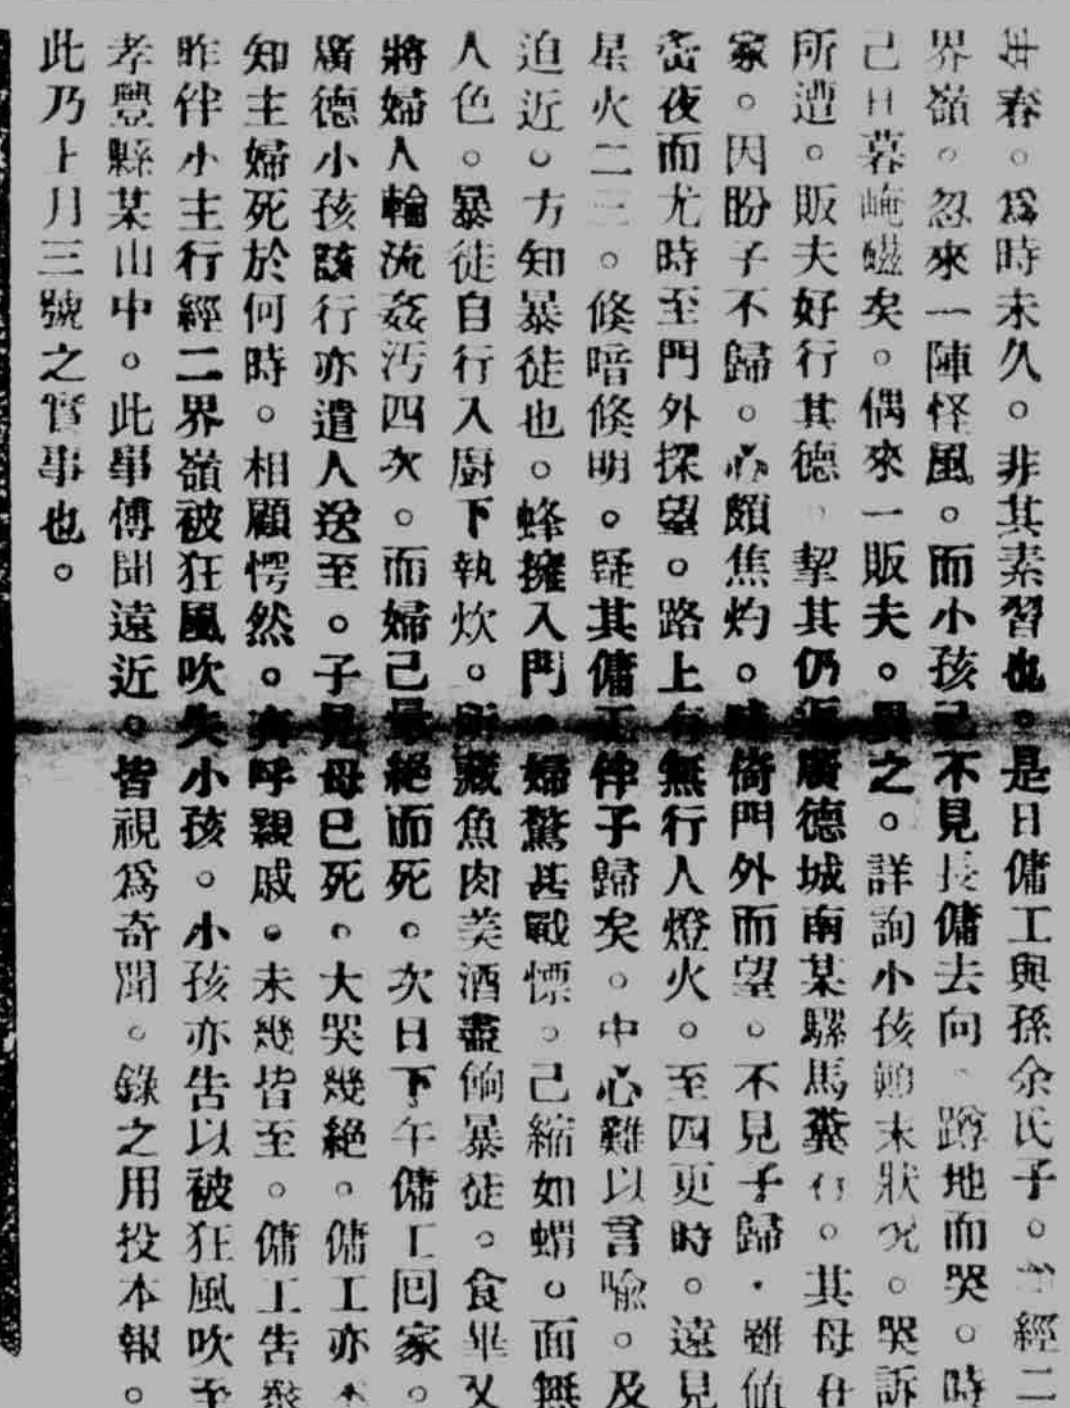 春。爲時未久。非其素習也。是日傭工與孫余氏子。經二
界嶺。忽來一陣怪風。而小孩己不見長傭去向。蹲地而哭。時
己日暮崦嵫矣。偶來一販夫。異之。詳詢小孩顛末狀况。哭訴
所遭。販夫好行其德。挈其仍返廣德城南某騾馬糞行。其母在
家。因盼子不歸。心頗焦灼。倚門外而望。不見子歸。雖値
夜而尤時至門外探望。路上有無行人燈火。至四更時。遠見
星火二三。倐暗倐明。疑其傭工伴子歸矣。中心難以言喻。及
迫近。方知暴徒也。蜂擁入門。婦驚甚戰慄。己縮如蝟。面無
人色。暴徒自行入廚下執炊。所藏魚肉美酒盡餉暴徒。食畢又
將婦人輪流姦汚四次。而婦己暈絕而死。次日下午傭工回家。
廣德小孩該行亦遣人送至。子見母已死。大哭幾絕。傭工亦不
知主婦死於何時。相顧愕然。奔呼親戚。未幾皆至。傭工告衆
昨伴小主行經二界嶺被狂風吹失小孩。小孩亦告以被狂風吹至
孝豐縣某山中。此事傳聞遠近。皆視爲奇聞。錄之用投本報。
此乃上月三號之實事也。